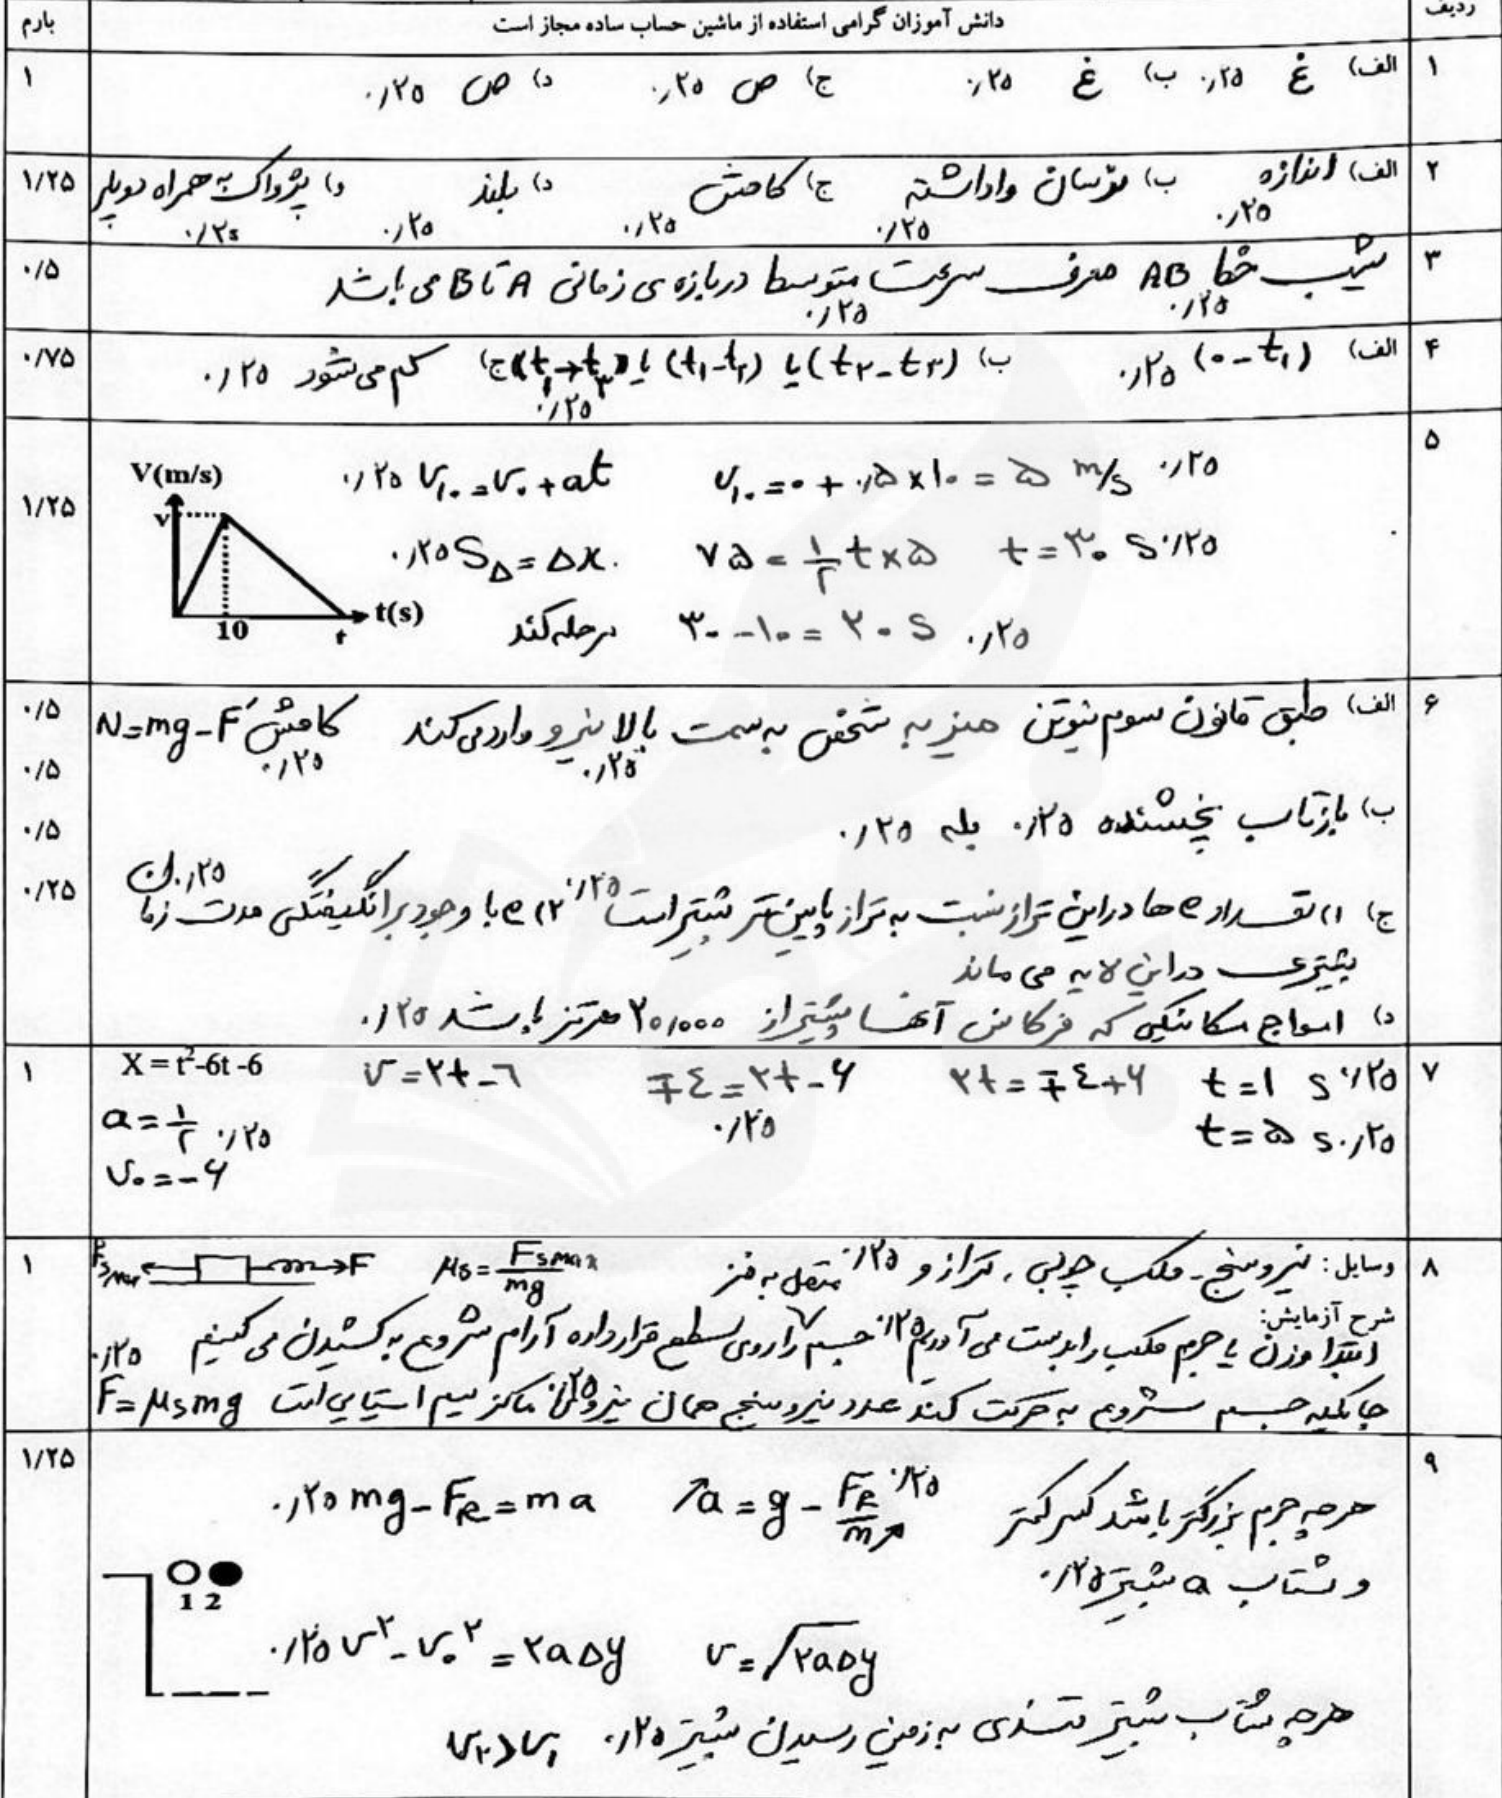 ردیف
دانش آموزان گرامی استفاده از ماشین حساب ساده مجاز است
بارم
۱
الف) غ ۰/۲۵ ب) غ ۰/۲۵ ج) ص ۰/۲۵ د) ص ۰/۲۵
۱
۲
الف) اندازه ۰/۲۵ ب) نوسان واداشته ۰/۲۵ ج) کاهش ۰/۲۵ د) بلند ۰/۲۵ و) پژواک به همراه دوپلر ۰/۲۵
۱/۲۵
۳
شیب خط AB ۰/۲۵ معرف سرعت متوسط ۰/۲۵ در بازه ی زمانی A تا B می باشد
۰/۵
۴
الف) (۰-t۱) ۰/۲۵ ب) (t۲-t۳) یا (t۱-t۲) یا (t۱→t۳) ۰/۲۵ ج) کم می شود ۰/۲۵
۰/۷۵
۵
۰/۲۵ V۱۰=V۰+at V۱۰=۰+۰/۵×۱۰=۵ m/s ۰/۲۵
۰/۲۵ SΔ=Δx ۷۵=۱/۲ t×۵ t=۳۰ S ۰/۲۵
مرحله کند ۳۰-۱۰=۲۰ S ۰/۲۵
V(m/s)
v
10
t
t(s)
۱/۲۵
۶
الف) طبق قانون سوم نیوتن میز به شخص به سمت بالا نیرو وارد می کند ۰/۲۵ کاهش ۰/۲۵ N=mg-F′
۰/۵
ب) بازتاب پخشنده ۰/۲۵ بله ۰/۲۵
۰/۵
ج) ۱) تعداد e ها در این تراز نسبت به تراز پایین تر بیشتر است ۰/۲۵ ۲) e با وجود برانگیختگی مدت زمان ۰/۲۵
بیشتری در این لایه می ماند
۰/۵
د) امواج مکانیکی که فرکانس آنها بیشتر از ۲۰,۰۰۰ هرتز باشد ۰/۲۵
۰/۲۵
۷
X = t²-6t -6 V=۲t-۶ ∓۴=۲t-۶ ۰/۲۵ ۲t=∓۴+۶ t=۱ S ۰/۲۵
a=۱/۲ ۰/۲۵ t=۵ S ۰/۲۵
V۰=-۶
۱
۸
وسایل: نیروسنج - مکعب چوبی، ترازو ۰/۲۵ متصل به فنر μs=Fsmax/mg Fsmax F
شرح آزمایش:
ابتدا وزن یا جرم مکعب را بدست می آوریم ۰/۲۵ جسم را روی سطح قرار داده آرام شروع به کشیدن می کنیم ۰/۲۵
جسم شروع به حرکت کند عدد نیروسنج همان نیروی ۰/۲۵ ماکزیمم ایستایی است F=μsmg
۱
۹
۰/۲۵ mg-FR=ma ↗a=g-FR/m↗ ۰/۲۵ هرچه جرم بزرگتر باشد کسر کمتر
و شتاب a بیشتر ۰/۲۵
1 2
۰/۲۵ V²-V۰²=۲aΔy V=√۲aΔy
هرچه شتاب بیشتر تندی به زمین رسیدن بیشتر ۰/۲۵ V۲>V۱
۱/۲۵